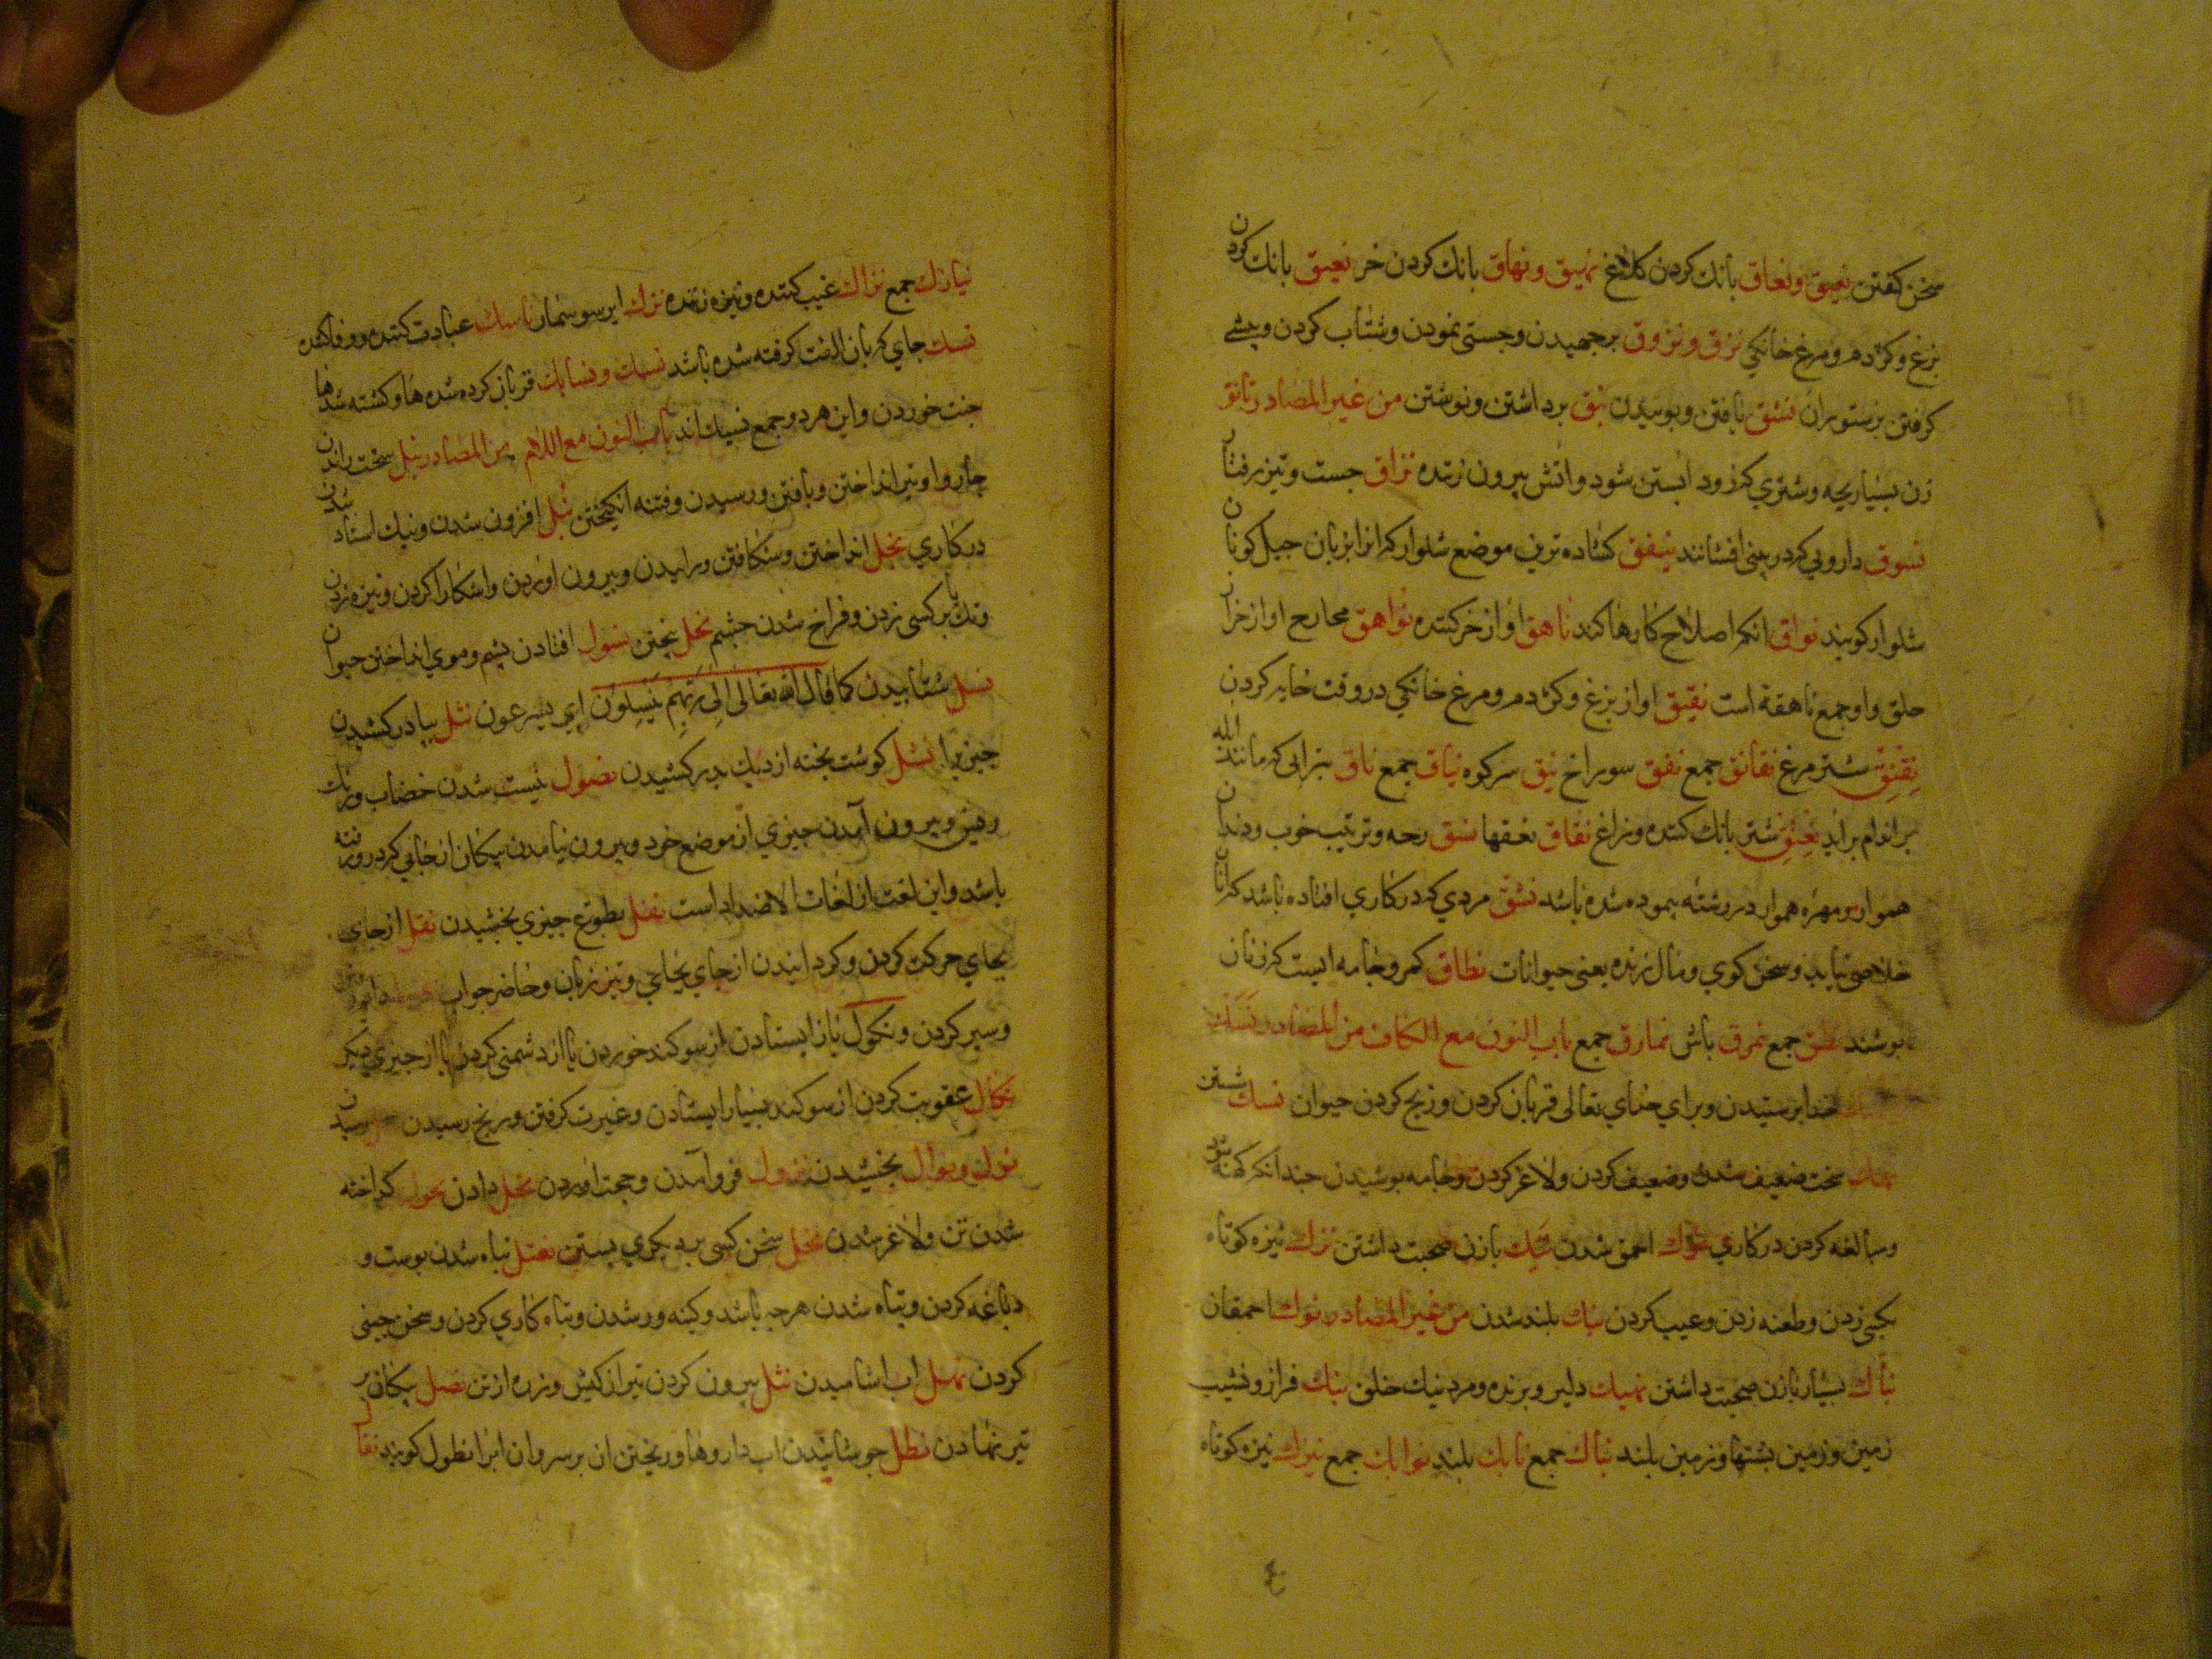 سخن کفتن نعیق ونعاق بانك کردن کلاغ نهیق ونهاق بانك کردن خر نعیق بانك کردن
بزغ وکژدم ومرغ خانکي نزق ونزوق برجهیدن وجستی نمودن وشتاب کردن وپیشي
کرفتن برستوران نشق یافتن وبوییدن نبق برداشتن ونوشتن من غیر المصادر ناتق
زن بسیار بچه وشتري که زود ابستن شود واتش بیرون زننده نزاق جست وتیز رفتار
نسوق داروبي که در بینی افشانند نیفق کشاده ترین موضع شلوار که انرا بزبان جیل کونان
شلوار کویند نواق انکه اصلاح کارها کند ناهق اواز خر کننده نواهق مخارج اواز خر از
حلق واو جمع ناهقة است نقیق اواز بزغ وکژدم ومرغ خانکي در وقت خایه کردن
نقنق شتر مرغ نقانق جمع نفق سوراخ نیق سرکوه نیاق جمع ناق بثرابی که مانند ابله
بر اندام براید نغق شتر بانك کننده وزاغ نفاق نفقها نسق رحه وترتیب خوب ودندان
هموار ومهرۀ هموار در رشته پیموده شده باشد نشق مردي که در کاري افتاده باشد که ازان
خلاصی نیابد وسخن کوي ومال زنده یعنی حیوانات نطاق کمر وجامه ایست که زنان
پوشند نطق جمع نمرق بالش نمارق جمع باب النون مع الکاف من المصادر نسك
خدا پرستیدن وبراي خداي تعالی قربان کردن وذبح کردن حیوان نسك شستن
نهك سخت ضعیف شدن وضعیف کردن ولاغر کردن وجامه پوشیدن چندانکه کهنه شود
ومبالغه کردن در کاري نوك احمق شدن نیك بازن صحبت داشتن نزك نیزه کوتاه
بکسی زدن وطعنه زدن وعیب کردن نبك بلند شدن من غیر المصادر نوك احمقان
نیاك بسیار بازن صحبت داشتن نهیك دلیر وبرنده ومرد نیك خلق نبك فراز ونشیب
زمین وزمین پشتها وزمین بلند نباك جمع نابك بلند نوابك جمع نیزك نیزه کوتاه
نیازك جمع نزاك عیب کننده ونیزه زننده نزك ایر سوسمار ناسك عبادت کننده
نسك جاي که بان الفت کرفته شده باشد نسیك ونسایك قربان کرده شده ها وکشته شدها
جنت خوردن واین هر دو جمع نسیك اند باب النون مع اللام من المصادر نبل سخت راندن
چاروا وتیر انداختن ویافتن ورسیدن وفتنه انکیختن نبل افزون شدن ونیك استاد شدن
در کاري نجل انداختن وشکافتن ورانیدن وبیرون اوردن واشکارا کردن ونیزه زدن
وتك پا بر کسی زدن وفراخ شدن چشم نخل بیختن نسول افتادن پشم وموي انداختن حیوان
نسل شتابیدن کما قال الله تعالی الی ربهم ینسلون اي یسرعون نثل بیادر کشیدن
چیزیرا نشل کوشت پخته از دیك بدر کشیدن نصول نیست شدن خضاب ورنك
رفتن وبیرون آمدن چیزي از موضع خود وبیرون نیامدن پیکان از جایي که در ورفته
باشد واین لغت از لغات الاضداد است نفل بطوع چیزي بخشیدن نقل از جاي
بجاي حرکت کردن وکردانیدن از جاي بجاي وتیز زبان وحاضر جواب
وسیر کردن ونکول باز ایستادن از سوکند خوردن یا از دشمنی کردن یا از چیزي دیکر
نکال عقوبت کردن از سوکند بسیار ایستادن وغیرت کرفتن ورنج رسیدن
نول ونوال بخشیدن نزول فرو آمدن وحجت اوردن نحل دادن نحول کداخته
شدن تن ولاغر شدن نحل سخن کسی بر دیکري بستن نغل تباه شدن پوست و
دباغه کردن وتباه شدن هر چه باشد وکینه ور شدن وتباه کاري کردن وسخن چینی
کردن نهل اب اشامیدن نثل بیرون کردن تیر از کیش وزره از تن نصل پیکان بر
تیر نهادن نطل جوشانیدن اب داروها وریختن ان بر سر وان ابرا نطول کویند نقا